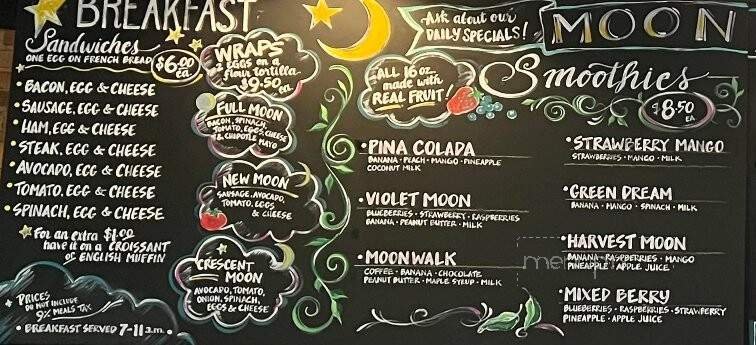 BREAKFAST
Sandwiches
ONE EGG ON FRENCH BREAD
$6.00
ea
• BACON, EGG & CHEESE
• SAUSAGE, EGG & CHEESE
• HAM, EGG & CHEESE
• STEAK, EGG & CHEESE
• AVOCADO, EGG & CHEESE
• TOMATO, EGG & CHEESE
• SPINACH, EGG & CHEESE
For an extra $1.00
have it on a CROISSANT
or ENGLISH MUFFIN
• PRICES
DO NOT INCLUDE
9% MEALS TAX
• BREAKFAST SERVED 7-11 a.m. •
WRAPS
2 EGGS on a
flour tortilla
$9.50
ea
FULL MOON
BACON, SPINACH,
TOMATO, EGGS, CHEESE
& CHIPOTLE MAYO
NEW MOON
SAUSAGE, AVOCADO,
TOMATO, EGGS
& CHEESE
CRESCENT
MOON
AVOCADO, TOMATO,
ONION, SPINACH,
EGGS & CHEESE
Ask about our
DAILY SPECIALS!
MOON
Smoothies
$8.50
EA
ALL 16 oz.
made with
REAL FRUIT!
• PINA COLADA
BANANA • PEACH • MANGO • PINEAPPLE
COCONUT MILK
• VIOLET MOON
BLUEBERRIES • STRAWBERRY • RASPBERRIES
BANANA • PEANUT BUTTER • MILK
• MOONWALK
COFFEE • BANANA • CHOCOLATE
PEANUT BUTTER • MAPLE SYRUP • MILK
• STRAWBERRY MANGO
STRAWBERRIES • MANGO • MILK
• GREEN DREAM
BANANA • MANGO • SPINACH • MILK
• HARVEST MOON
BANANA • RASPBERRIES • MANGO
PINEAPPLE • APPLE JUICE
• MIXED BERRY
BLUEBERRIES • RASPBERRIES • STRAWBERRY
PINEAPPLE • APPLE JUICE